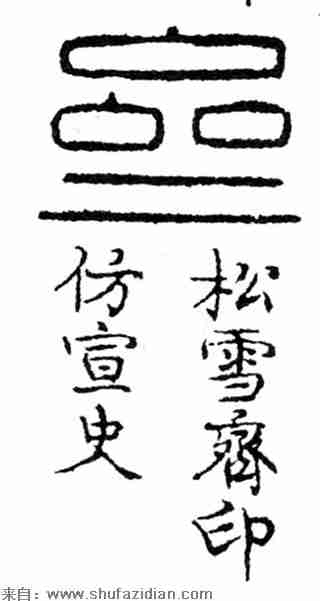 松雪齊印
仿宣史
来自：www.shufazidian.com